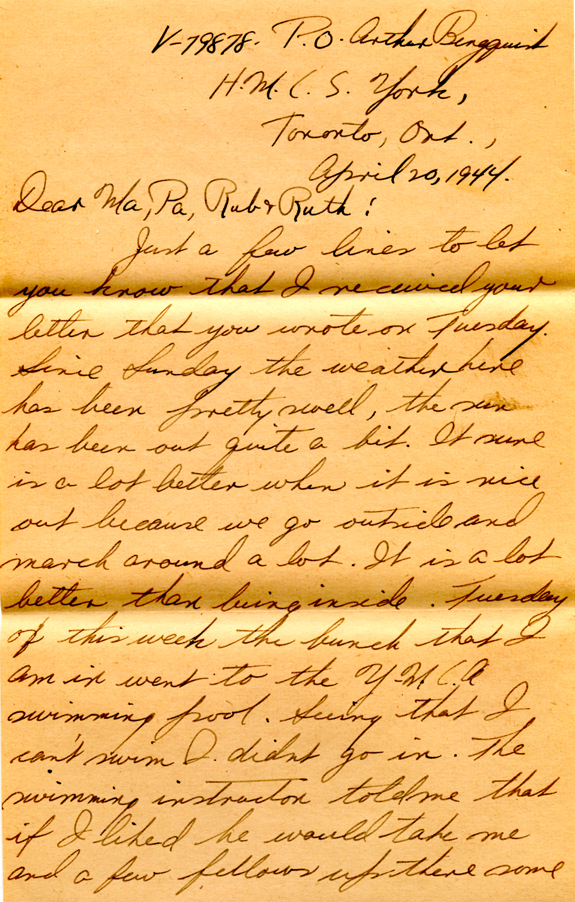 V-79878. P.O. Arthur Bergquist
H.M.C.S. York,
Toronto, Ont.,
April 20, 1944.
Dear Ma, Pa, Rub & Ruth!
Just a few lines to let
you know that I received your
letter that you wrote on Tuesday.
Since Sunday the weather here
has been pretty swell, the sun
has been out quite a bit. It sure
is a lot better when it is nice
out because we go outside and
march around a lot. It is a lot
better than being inside. Tuesday
of this week the bunch that I
am in went to the Y.M.C.A
swimming pool. Seeing that I
can't swim I didnt go in. The
swimming instructor told me that
if I liked he would take me
and a few fellows up there some